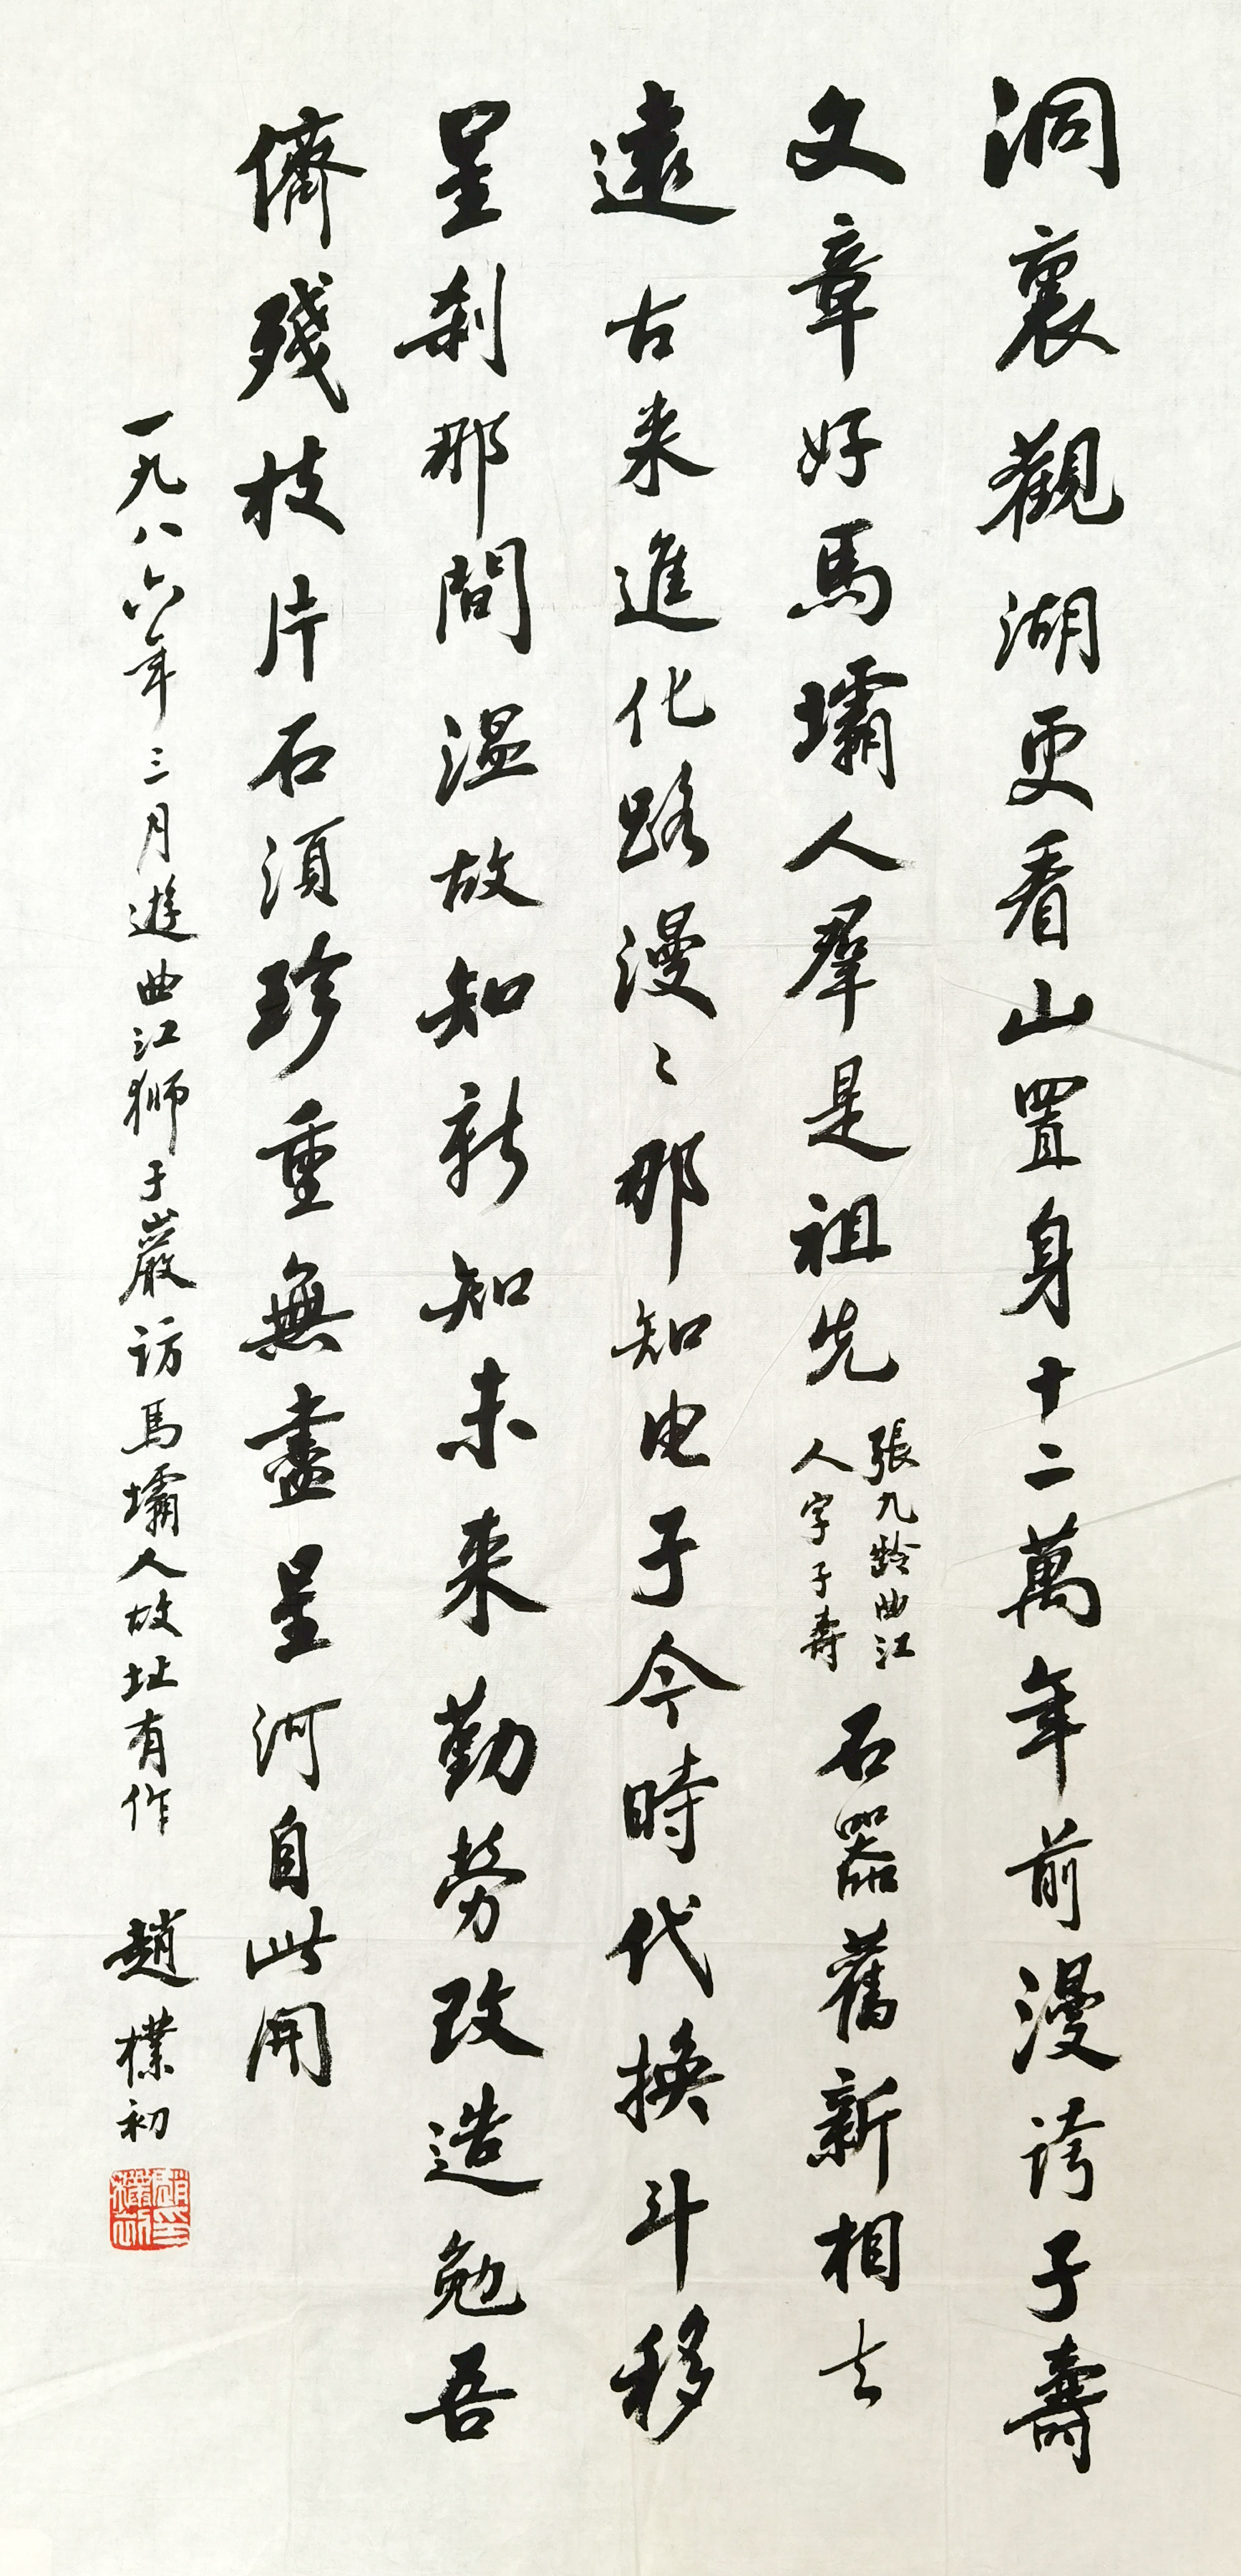 洞裏觀湖更看山置身十二萬年前漫誇子壽
文章好馬壩人羣是祖先
張九齡曲江
人字子壽
石器舊新相去
遠古來進化路漫〻那知电子今時代換斗移
星刹那間溫故知新知未来勤勞改造勉吾
儕殘枝片石須珍重無盡星河自此開
一九八六年三月遊曲江獅子巖访馬壩人故址有作
趙樸初
趙樸初印